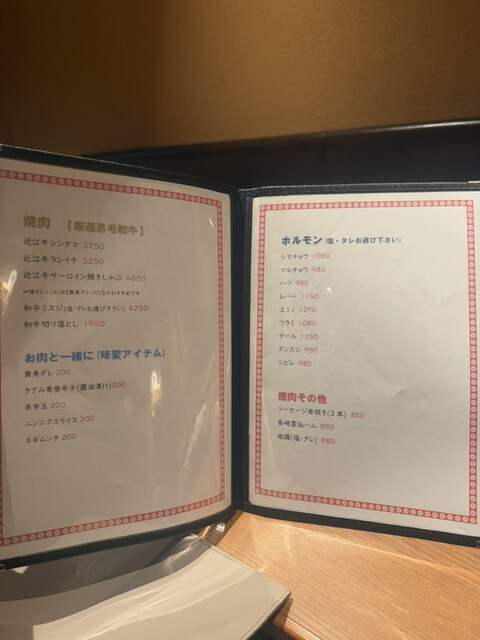 焼肉 【厳選黒毛和牛】
近江牛シンタマ 3250
近江牛ランイチ 3250
近江牛サーロイン焼きしゃぶ 4850
※焼きしゃぶには【黄身ダレ200】がおすすめです
和牛ミスジ(塩・タレお選び下さい) 4250
和牛切り落とし 1980
お肉と一緒に(味変アイテム)
黄身ダレ 200
きざみ青唐辛子(醤油漬け)200
赤辛玉 200
ニンニクスライス 200
ネギムンチ 200
ホルモン(塩・タレお選び下さい)
シマチョウ 1080
マルチョウ 980
ハツ 980
レバー 1150
上ミノ 1290
ツラミ 1080
テール 1250
タンスジ 980
シビレ 980
焼肉その他
ソーセージ串焼き(3本) 880
長崎雲仙ハム 880
地鶏(塩・タレ) 880